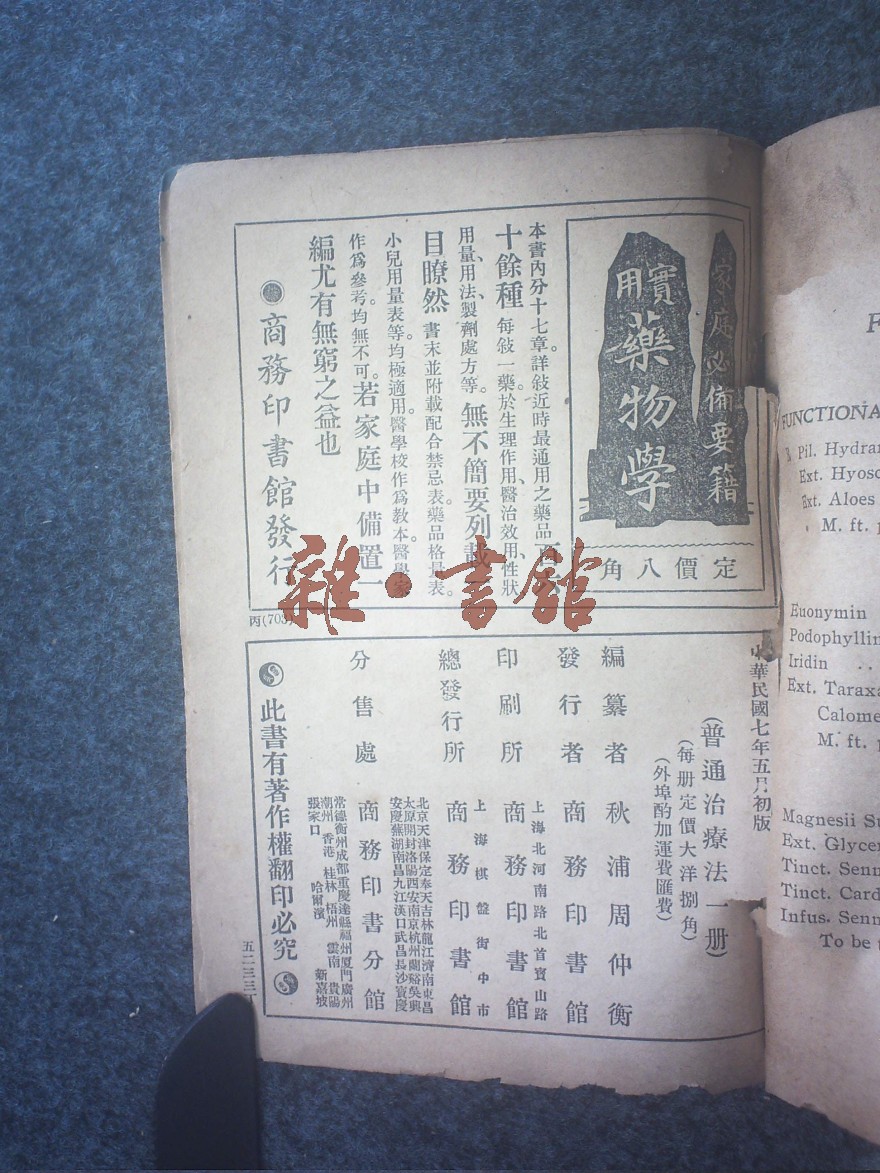 家庭必備要籍
實用
藥物學
定價八角
本書內分十七章。詳敍近時最通用之藥品百六
十餘種。每敍一藥。於生理作用、醫治效用、性狀
用量、用法、製劑處方等。無不簡要列載
目瞭然。書末並附載配合禁忌表。藥品格量表。
小兒用量表等。均極適用。醫學校作爲教本。醫學家
作爲參考。均無不可。若家庭中備置一
編尤有無窮之益也
商務印書館發行
丙(703)
中華民國七年五月初版
(普通治療法一册)
(每册定價大洋捌角)
(外埠酌加運費匯費)
編纂者 秋浦周仲衡
發行者 商務印書館
上海北河南路北首寶山路
印刷所 商務印書館
上海棋盤街中市
總發行所 商務印書館
北京天津保定奉天吉林龍江濟南東昌
太原開封洛陽西安南京杭州蘭谿吳興
安慶蕪湖南昌九江漢口武昌長沙寶慶
分售處 商務印書分館
常德衡州成都重慶達縣福州厦門廣州
潮州 香港 桂林 梧州 雲南 貴陽
張家口 哈爾濱 新嘉坡
此書有著作權翻印必究
五二三三
雜·書館
F
FUNCTIONA
Pil. Hydrar
Ext. Hyosc
Ext. Aloes
M. ft. p
Euonymin
Podophyllin
Iridin ..
Ext. Taraxa
Calome
M. ft. p
Magnesii Su
Ext. Glycer
Tinct. Senn
Tinct. Card
Infus. Senn
To be t